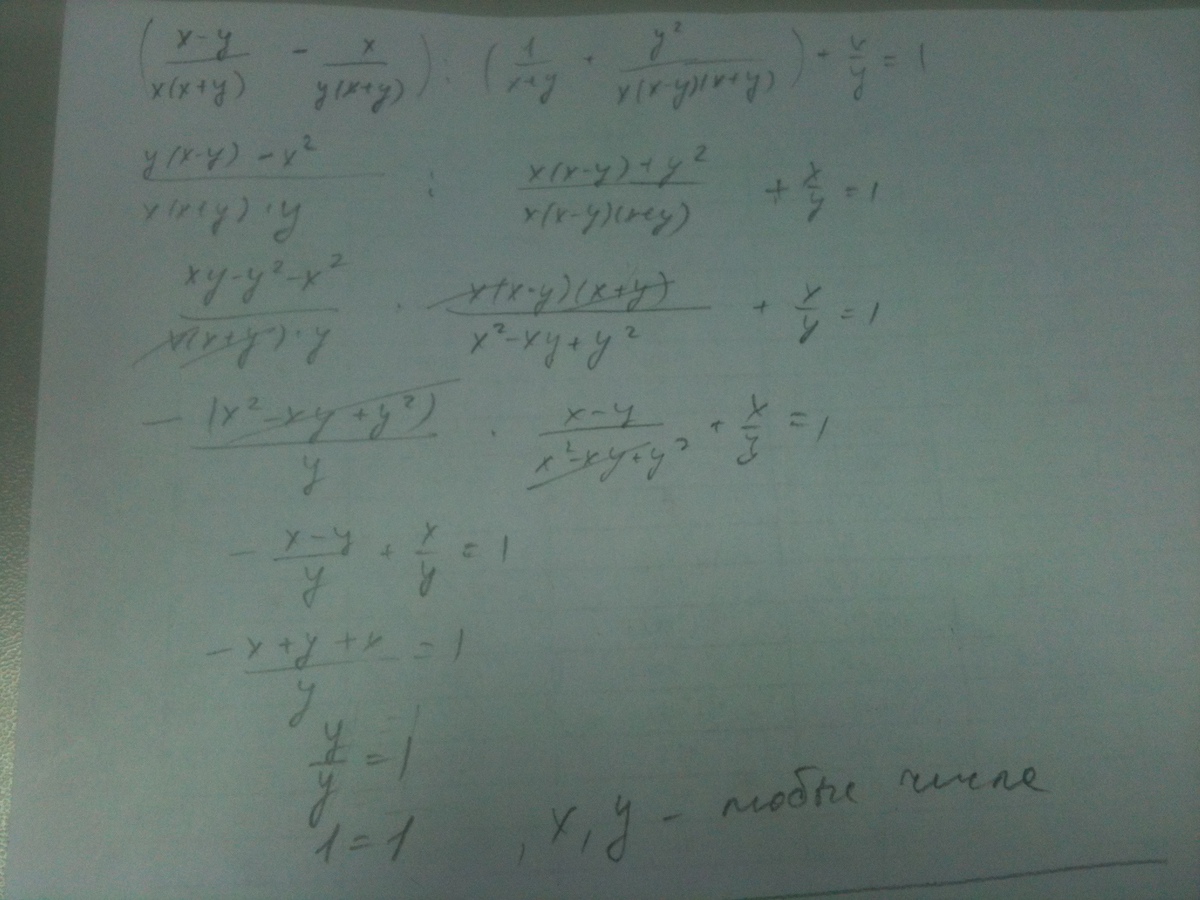 (x-y / x(x+y) - x / y(x+y)) : (1 / x+y + y² / x(x-y)(x+y)) + x/y = 1
y(x-y) - x² / x(x+y)·y : x(x-y)+y² / x(x-y)(x+y) + x/y = 1
xy-y²-x² / x(x+y)·y · x(x-y)(x+y) / x²-xy+y² + x/y = 1
- (x²-xy+y²) / y · x-y / x²-xy+y² + x/y = 1
- x-y / y + x/y = 1
-x+y+x / y = 1
y/y = 1
1=1 , x, y - любые числа